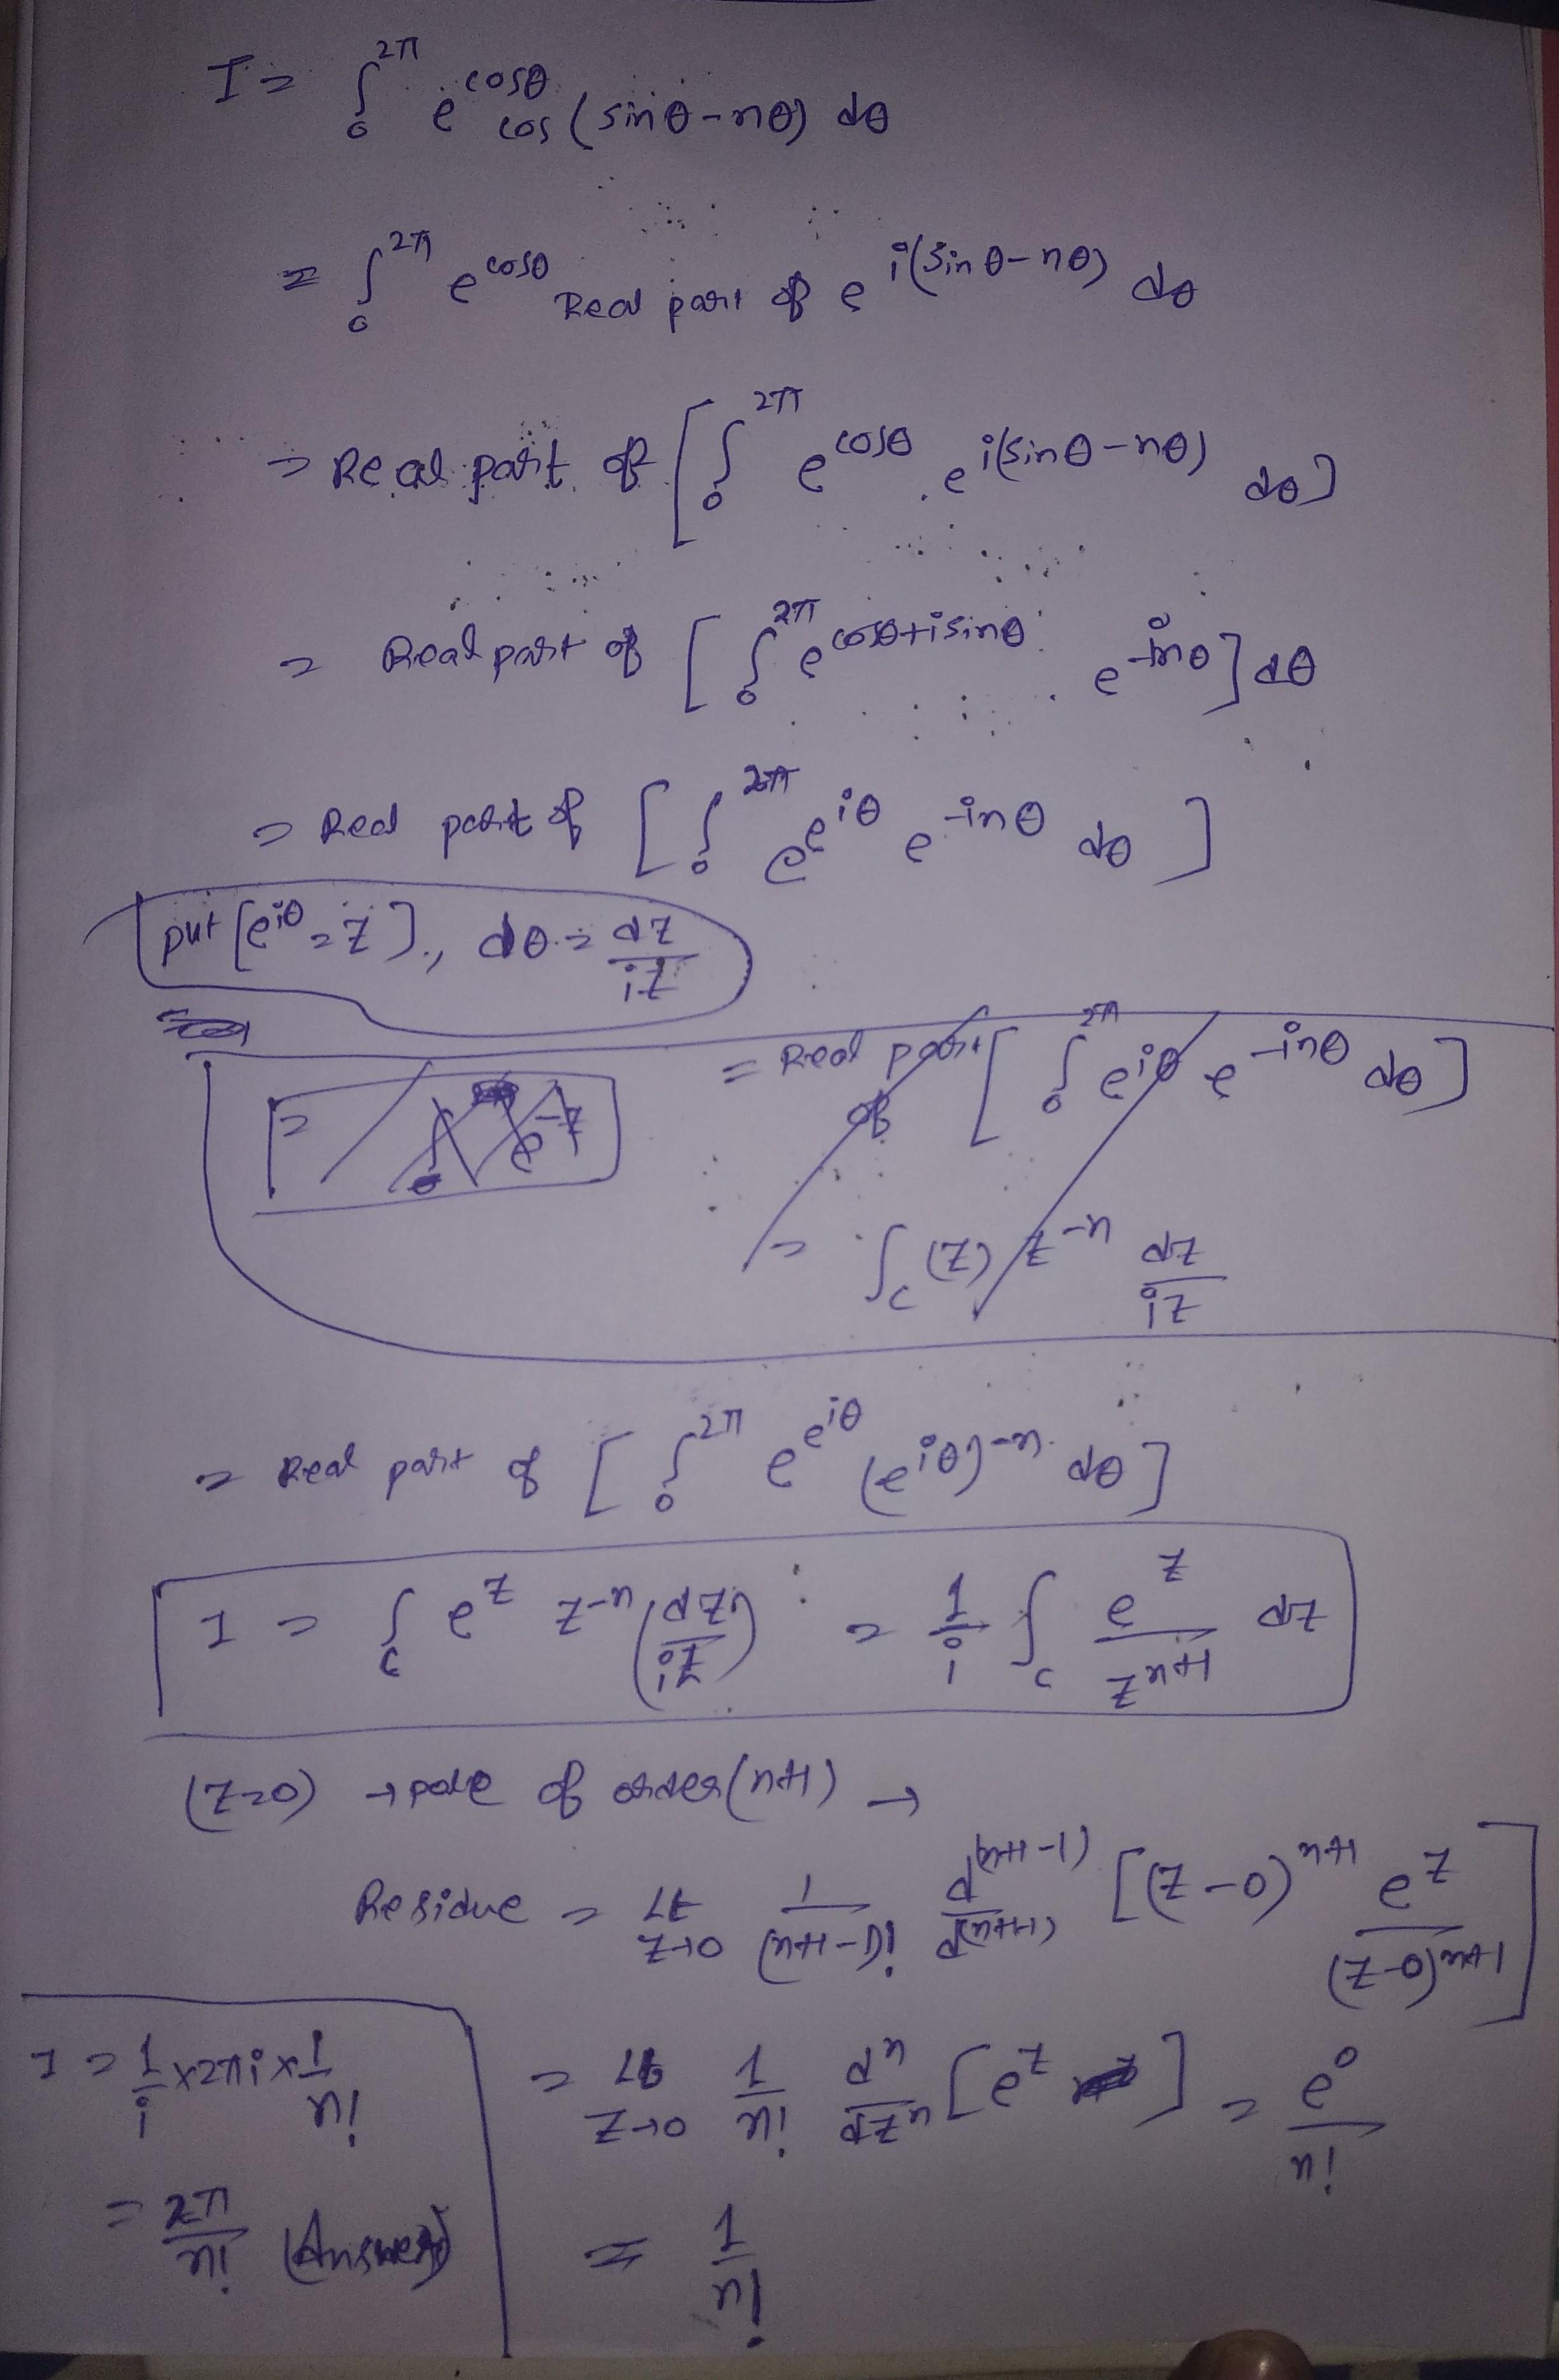 I = ∫₀^{2π} e^{cosθ} cos (sinθ-nθ) dθ
= ∫₀^{2π} e^{cosθ} Real part of e^{i(sinθ-nθ)} dθ
= Real part of [∫₀^{2π} e^{cosθ} . e^{i(sinθ-nθ)} dθ]
= Real part of [∫₀^{2π} e^{cosθ+isinθ} . e^{-inθ}] dθ
= Real part of [∫₀^{2π} e^{e^{iθ}} e^{-inθ} dθ]
put [e^{iθ} = z]., dθ = dz/iz
= Real part of [∫₀^{2π} e^{iθ} e^{-inθ} dθ]
= ∫_c (z) z^{-n} dz/iz
= Real part of [∫₀^{2π} e^{e^{iθ}} (e^{iθ})^{-n} dθ]
I = ∫_c e^z z^{-n} (dz/iz) = 1/i ∫_c e^z/z^{n+1} dz
(z=0) → pole of order (n+1) →
Residue = Lt_{z→0} 1/(n+1-1)! d^{(n+1-1)}/d^{(n+1-1)} [(z-0)^{n+1} e^z/(z-0)^{n+1}]
= Lt_{z→0} 1/n! d^n/dz^n [e^z] = e^0/n!
= 1/n!
I = 1/i x 2πi x 1/n!
= 2π/n! (Answer)